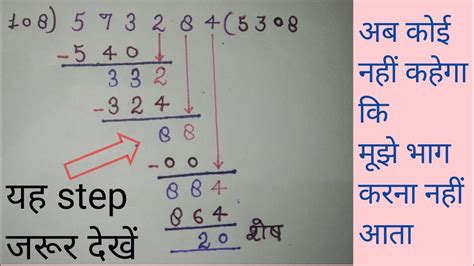 108) 573284 (5308
-540
332
-324
88
-00
884
864
20 शेष
यह step
जरूर देखें
अब कोई
नहीं कहेगा
कि
मूझे भाग
करना नहीं
आता